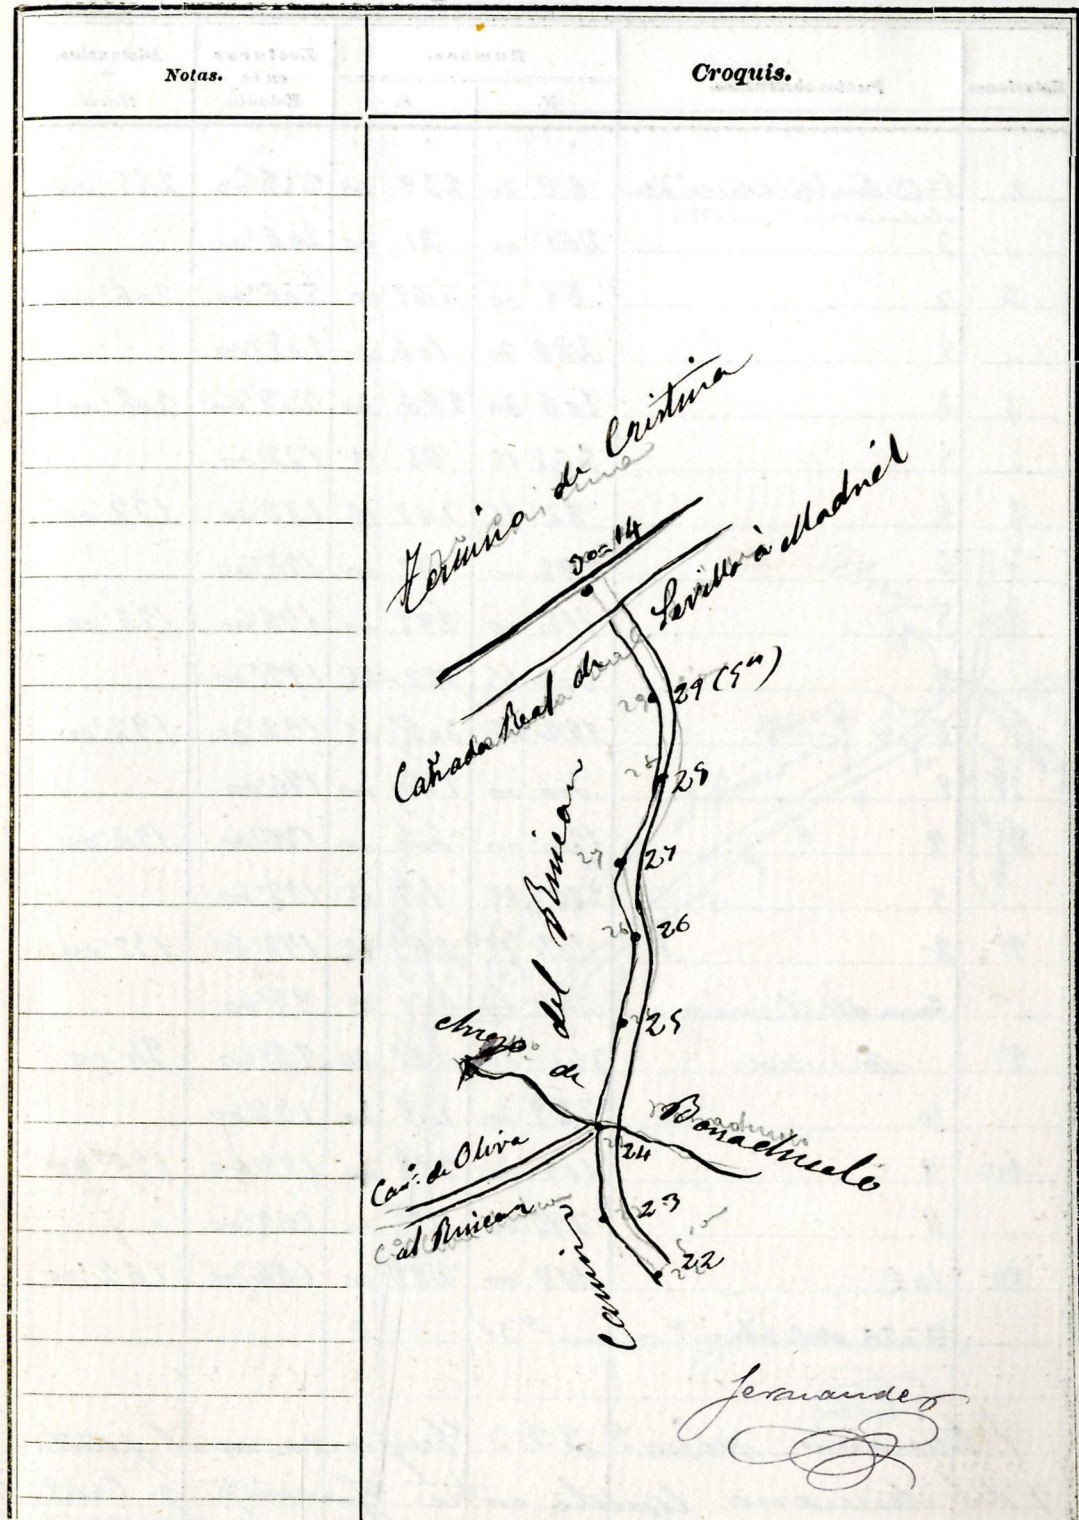 Notas.
Croquis.
Término de Cristina
30=14
Cañada Real de Sevilla à Madrid
29 (5ª)
28
27
26
25
Camino del Rincon
Arroyo de Bonachuelo
24
Cam.º de Oliva
al Rincon
23
22
Fernandez